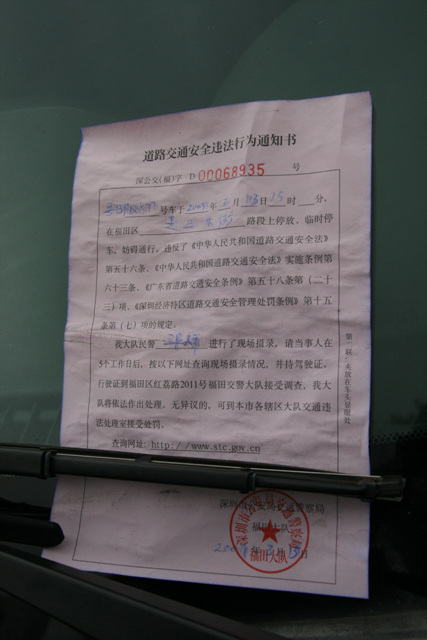 道路交通安全违法行为通知书
深公交(福)字 D 00068935 号
号车于 年 月 日 15 时 分,
在福田区 路段上停放、临时停
车,妨碍通行。违反了《中华人民共和国道路交通安全法》
第五十六条、《中华人民共和国道路交通安全法》实施条例第
六十三条、《广东省道路交通安全条例》第五十八条第(二十三
)项、《深圳经济特区道路交通安全管理处罚条例》第十五
条第(七)项的规定。
我大队民警 进行了现场摄录。请当事人在
5个工作日后,按以下网址查询现场摄录情况,并持驾驶证、
行驶证到福田区红荔路2011号福田交警大队接受调查。我大
队将依法作出处理。无异议的,可到本市各辖区大队交通违
法处理室接受处罚。
查询网址:http://www.stc.gov.cn
深圳市公安局交通警察局
福田大队
年 月 日
福田大队